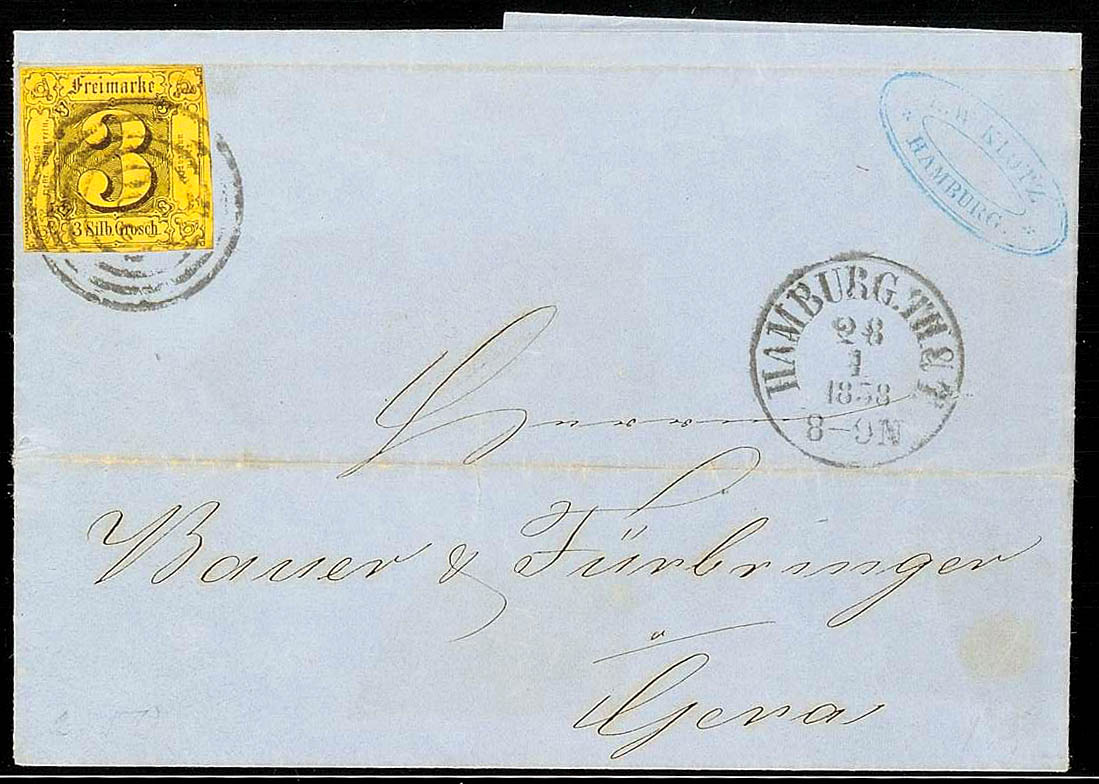 Freimarke
3
3 Silb. Grosch.
KLOTZ
* HAMBURG. *
HAMBURG. TH & T
28
1
1858
8-9N
Herren
Bauer & Fürbringer
a
Gera